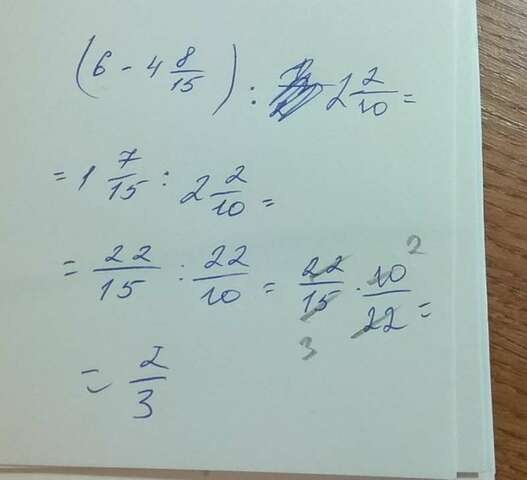 (6 - 4 8/15) : 2 2/10 =
= 1 7/15 : 2 2/10 =
= 22/15 : 22/10 = 22/15 · 10/22 =
3 2
= 2/3